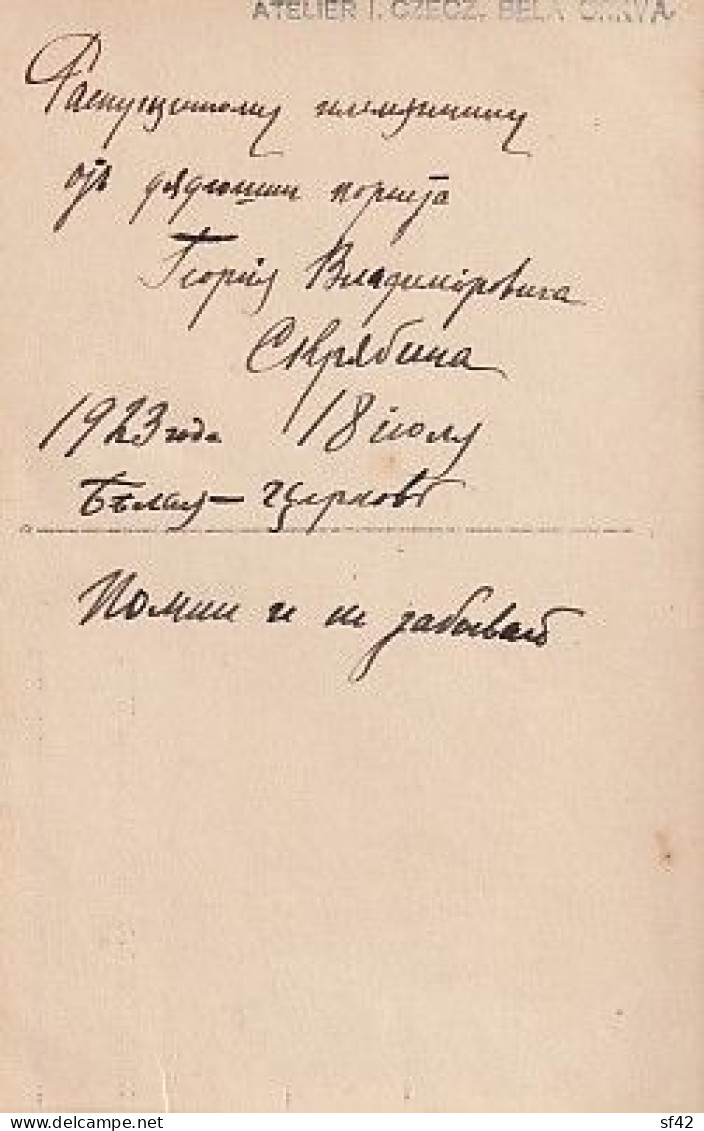 ATELIER I. CZECZ. BELA CRKVA.
Распущеному племяннику
отъ дядюшки
Георгія Владиміровича
Скрябина
1923 года 18 іюля
Бѣлая – Церковь
Помни и не забывай
delcampe.net
sf42